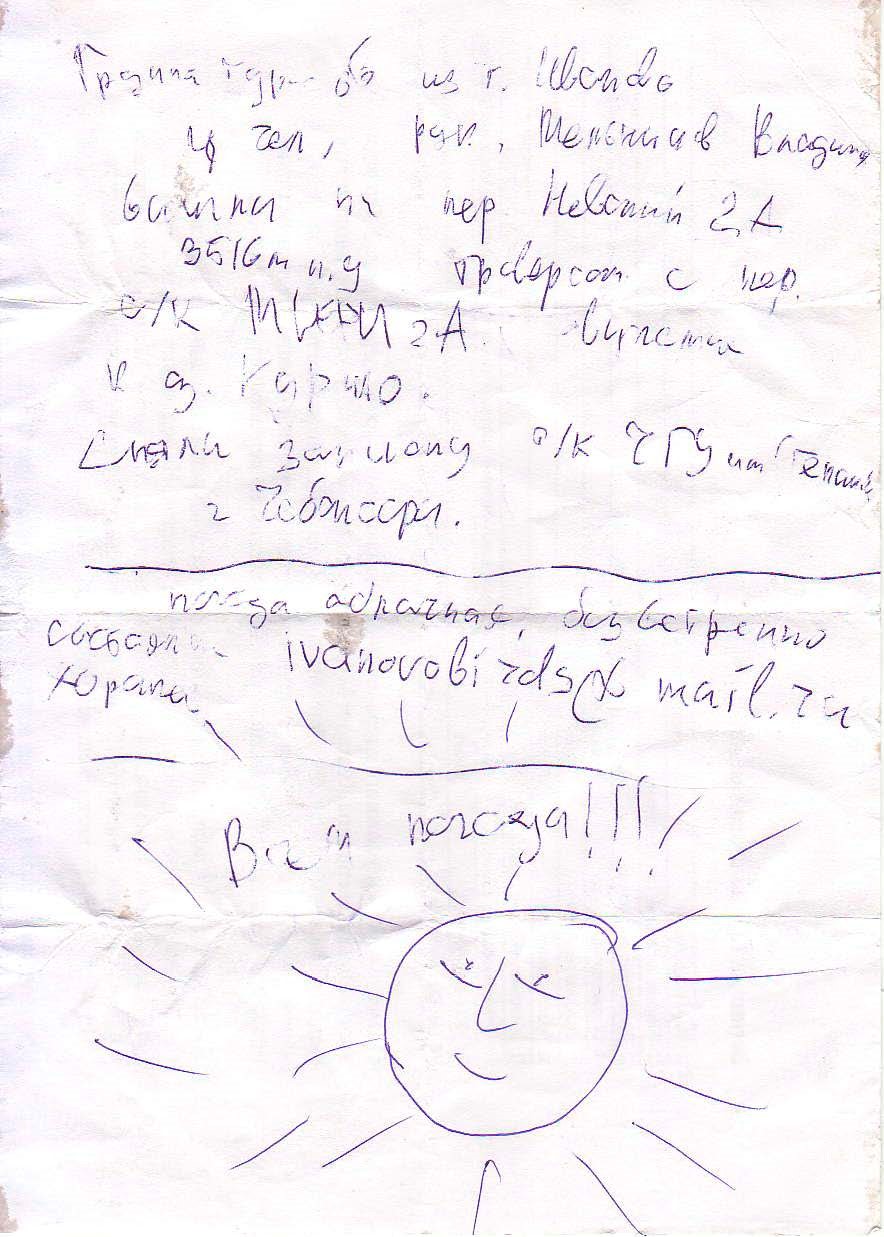 Группа тур из г. Иваново
4 чел, рук. Мельников Владим
вышли на пер. Невский 2А
3516м н.у траверсом с пер.
т/к МИФИ 2А.
к оз. Курцио.
Сняли записку т/к ЧГУ им
г Чебоксары.
погода облачная, безветренно
состояние ivanovobirds@mail.ru
хорошее
Всем погода!!!!